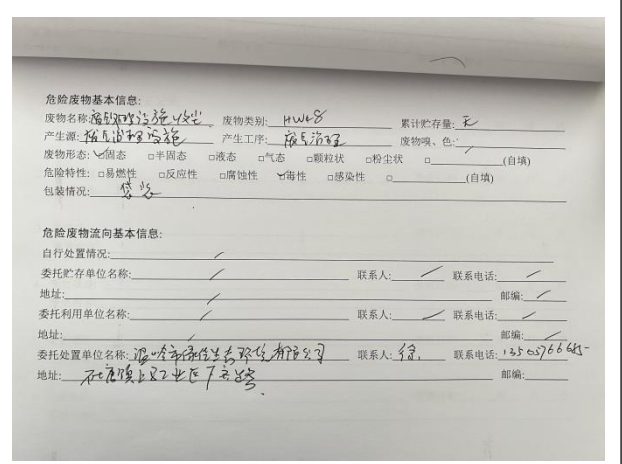 危险废物基本信息:
废物名称:废气处理设施收尘 废物类别: HW48 累计贮存量: 无
产生源: 废气治理设施 产生工序: 废气治理 废物嗅、色: /
废物形态: ☑固态 □半固态 □液态 □气态 □颗粒状 □粉尘状 □ (自填)
危险特性: □易燃性 □反应性 □腐蚀性 ☑毒性 □感染性 □ (自填)
包装情况: 袋装
危险废物流向基本信息:
自行处置情况: /
委托贮存单位名称: / 联系人: / 联系电话: /
地址: / 邮编: /
委托利用单位名称: / 联系人: / 联系电话: /
地址: / 邮编: /
委托处置单位名称: 温岭市绿佳生态环境有限公司 联系人: 徐 联系电话:
地址: 工业区 邮编: